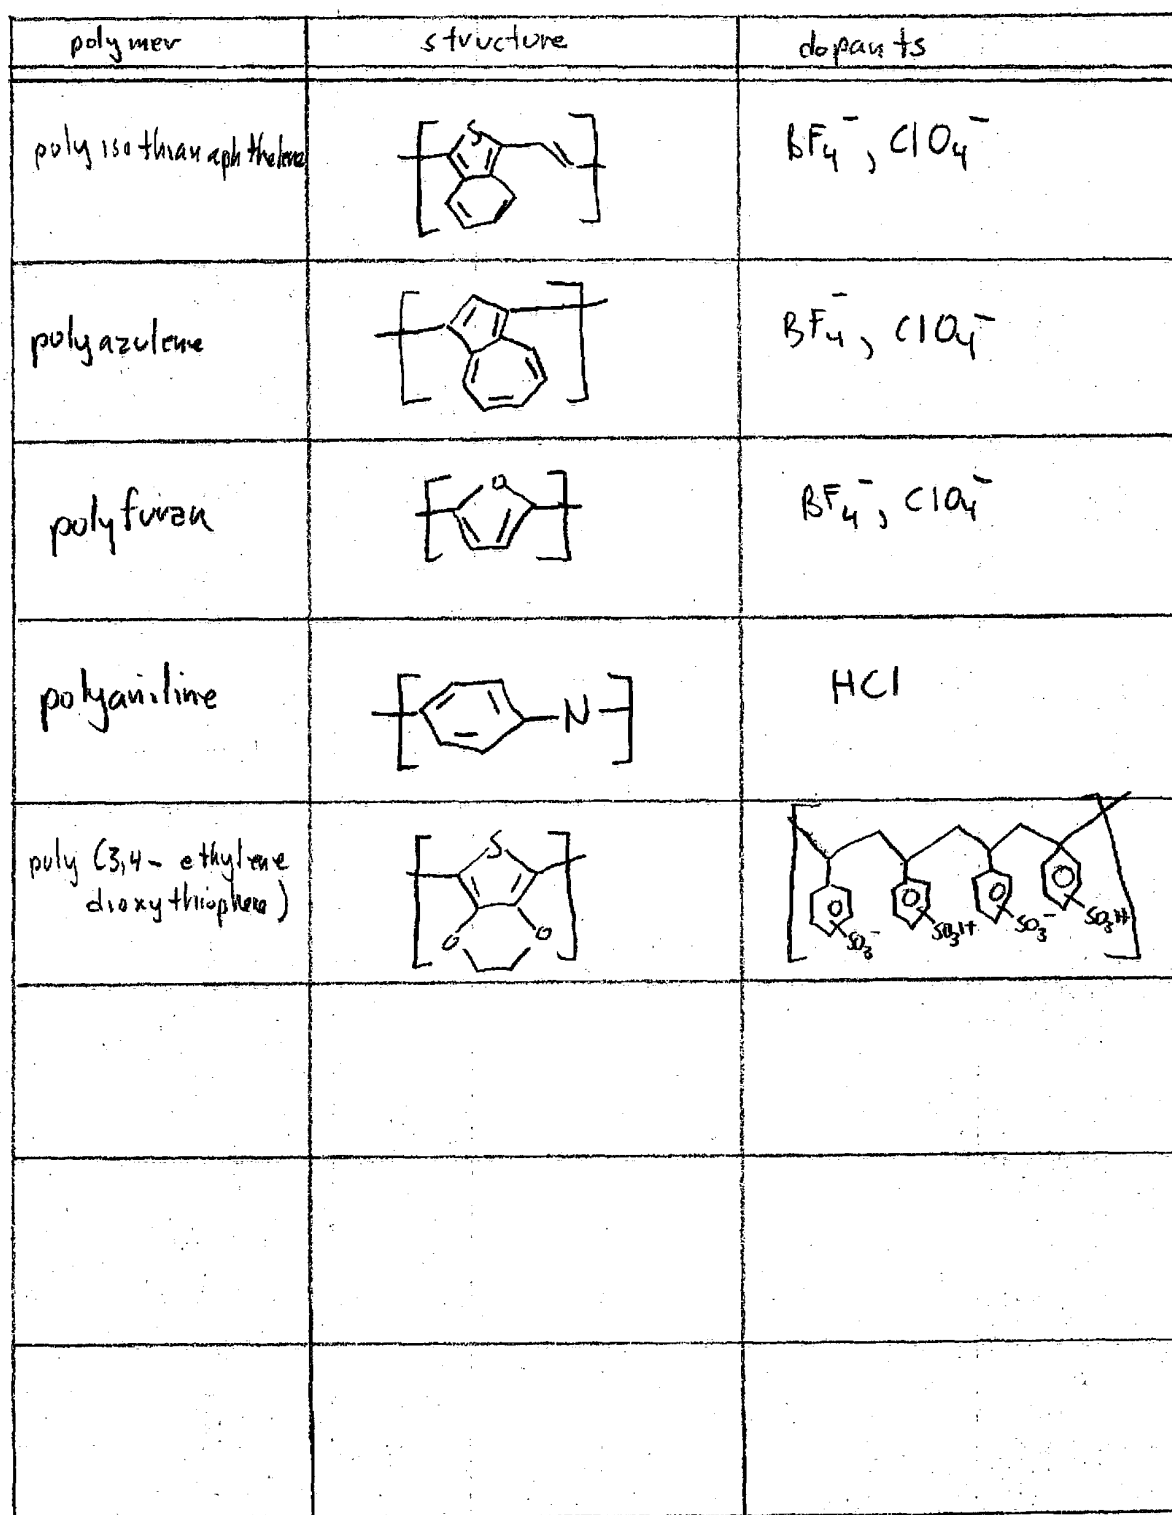 polymer structure dopants
polyisothianaphthelene S BF₄⁻, ClO₄⁻
polyazulene BF₄⁻, ClO₄⁻
polyfuran O BF₄⁻, ClO₄⁻
polyaniline N HCl
poly (3,4-ethylene
dioxythiophene)
S
O O
SO₃⁻ SO₃H SO₃⁻ SO₃H